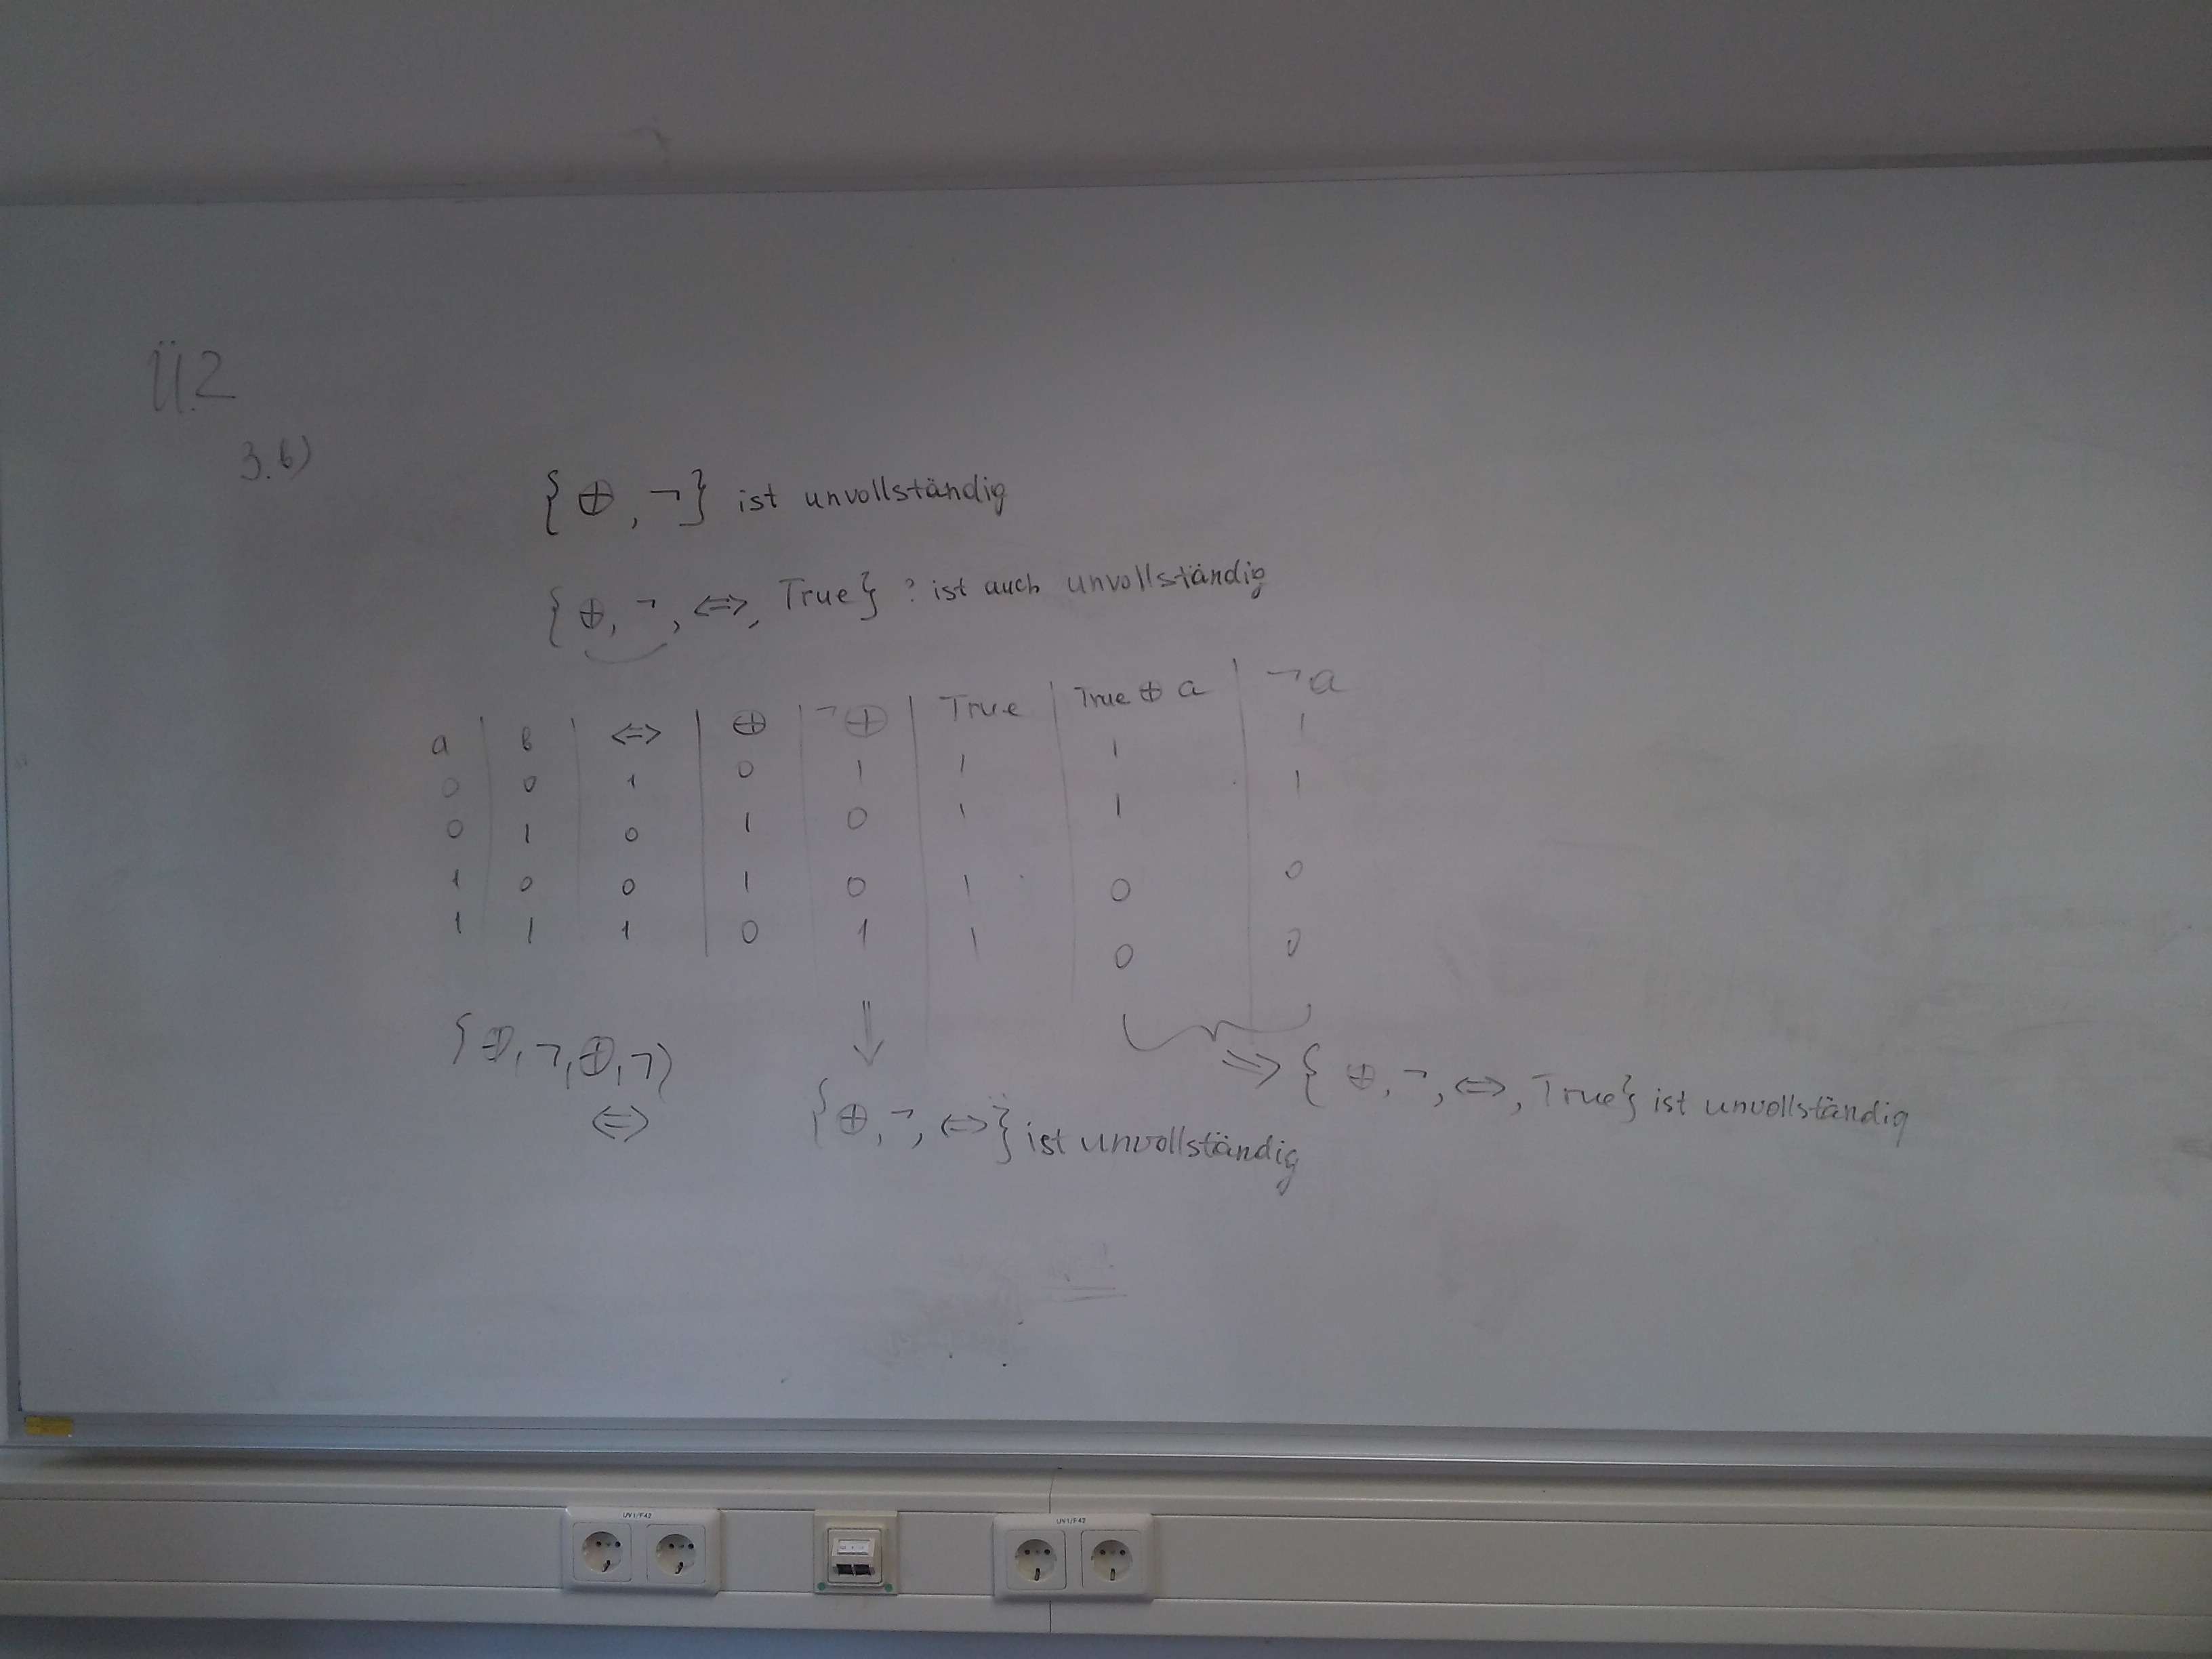 Ü.2
3.b)
{⊕, ¬} ist unvollständig
{⊕, ¬, ⇔, True} ? ist auch unvollständig
a | b | ⇔ | ⊕ | ¬⊕ | True | True ⊕ a | ¬a
0 0 1 0 1 1 1 1
0 1 0 1 0 1 1 1
1 0 0 1 0 1 0 0
1 1 1 0 1 1 0 0
⇓
{⊕, ¬, ⊕, ¬}
⇔ {⊕, ¬, ⇔} ist unvollständig
⇒ {⊕, ¬, ⇔, True} ist unvollständig
UV1/F42
UV1/F42